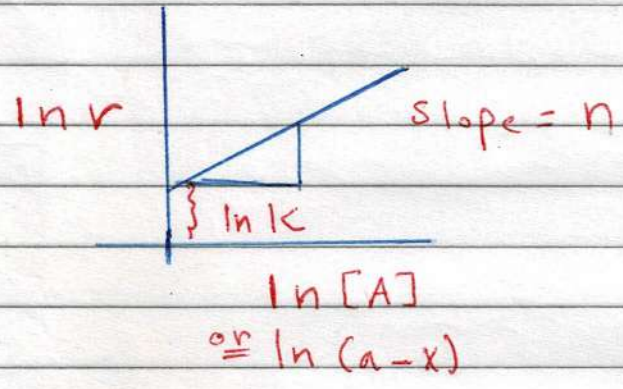 ln r
slope = n
ln k
ln [A]
or ln (a-x)